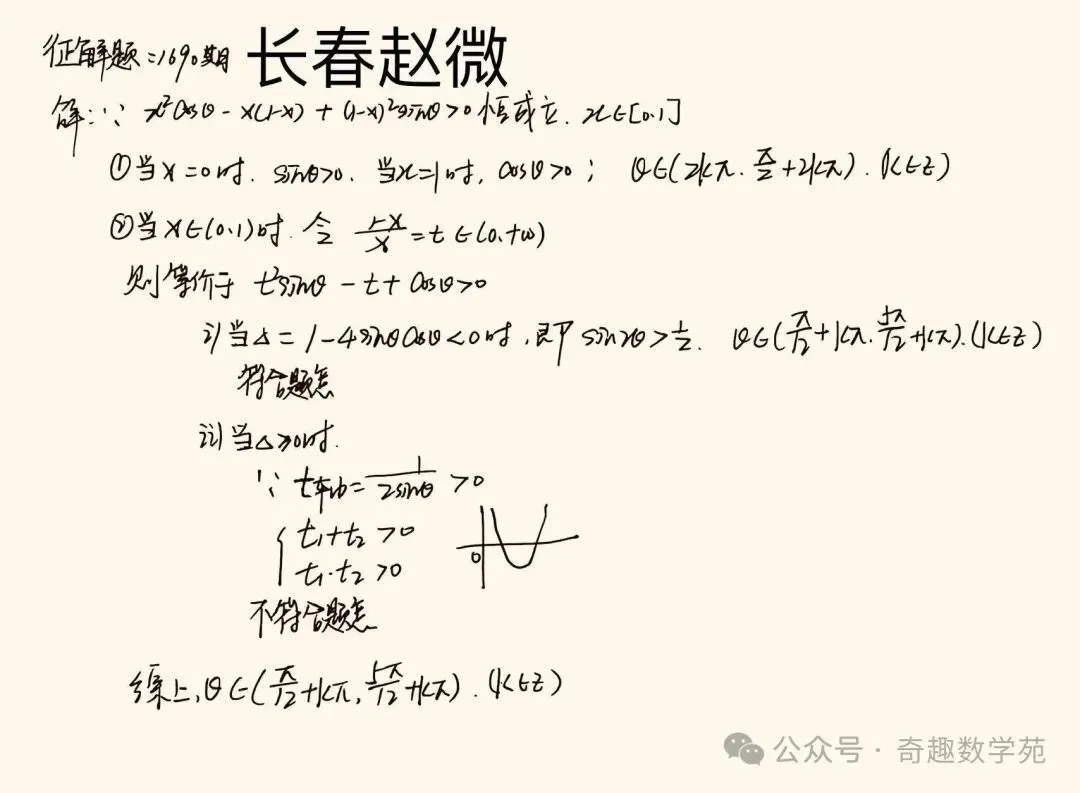 征解题:1690期 长春赵微
解:∵ x²cosθ - x(1-x) + (1-x)²sinθ>0恒成立. x∈[0.1]
①当x=0时. sinθ>0. 当x=1时, cosθ>0; θ∈(2kπ. π/2+2kπ). (k∈z)
②当x∈(0.1)时. 令 (1-x)/x = t ∈(0.+∞)
则等价于 t²sinθ - t + cosθ>0
i)当△= 1-4sinθcosθ<0时,即 sin2θ>1/2. θ∈(π/12+kπ. 5π/12+kπ).(k∈z)
符合题意
ii)当△≥0时.
∵ t轴=1/(2sinθ) >0
{ t₁+t₂ >0
t₁·t₂ >0
0
不符合题意
综上,θ∈(π/12+kπ, 5π/12+kπ). (k∈z)
公众号 · 奇趣数学苑